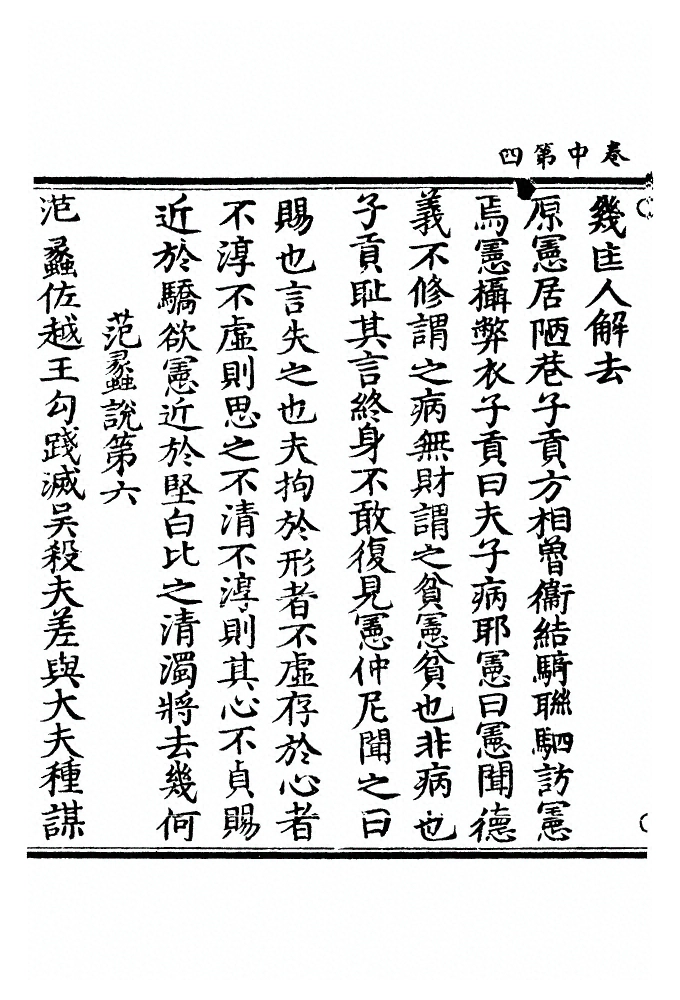 卷中第四
幾匡人解去
原憲居陋巷子貢方相魯衞結騎聯駟訪憲
焉憲攝弊衣子貢曰夫子病耶憲曰憲聞德
義不修謂之病無財謂之貧憲貧也非病也
子貢耻其言終身不敢復見憲仲尼聞之曰
賜也言失之也夫拘於形者不虛存於心者
不淳不虛則思之不清不淳則其心不貞賜
近於驕欲憲近於堅白比之清濁將去幾何
范蠡說第六
范蠡佐越王勾踐滅吳殺夫差與大夫種謀